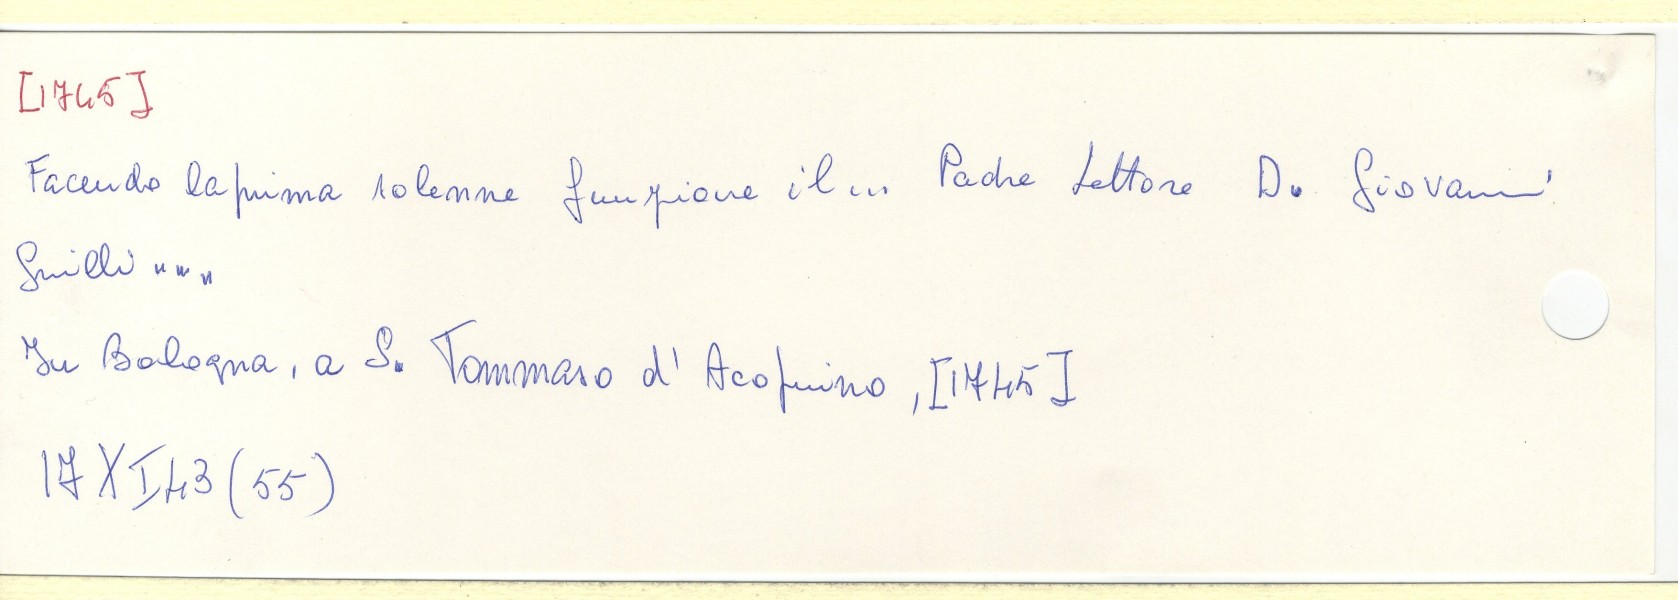 [1745]
Facendo la prima solenne funzione il ... Padre Lettore D. Giovanni
Grilli ...
In Bologna, a S. Tommaso d' Acquino, [1745]
17 XI 43 (55)